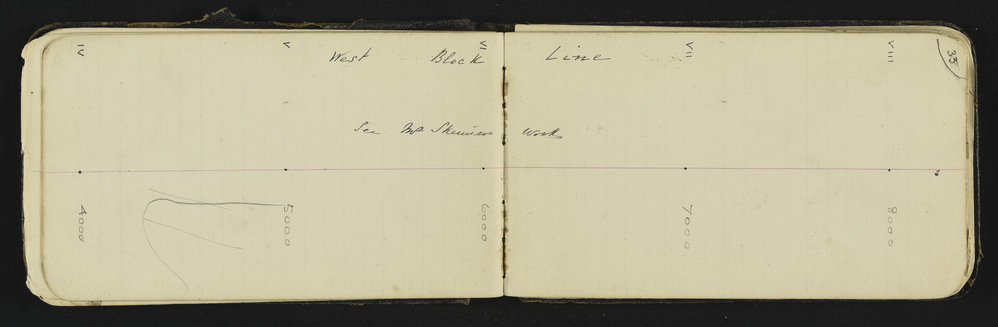 IV V VI VII VIII 35
West Block Line
See Mr Skinners Work
4000 5000 6000 7000 8000